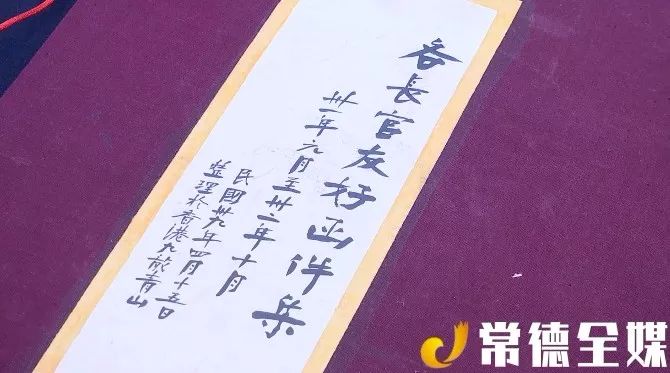 各長官友好函件集
卅一年元月至卅二年十月
民國卅九年四月十五日
整理於香港九龍青山
常德全媒